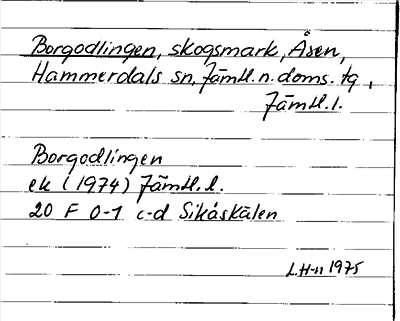 Borgodlingen, skogsmark, Åsen,
Hammerdals sn, Jämtl. n. doms. tg,
Jämtl. l.
Borgodlingen
ek (1974) Jämtl. l.
20 F 0-1 c-d Sikåskälen
L. H-n 1975